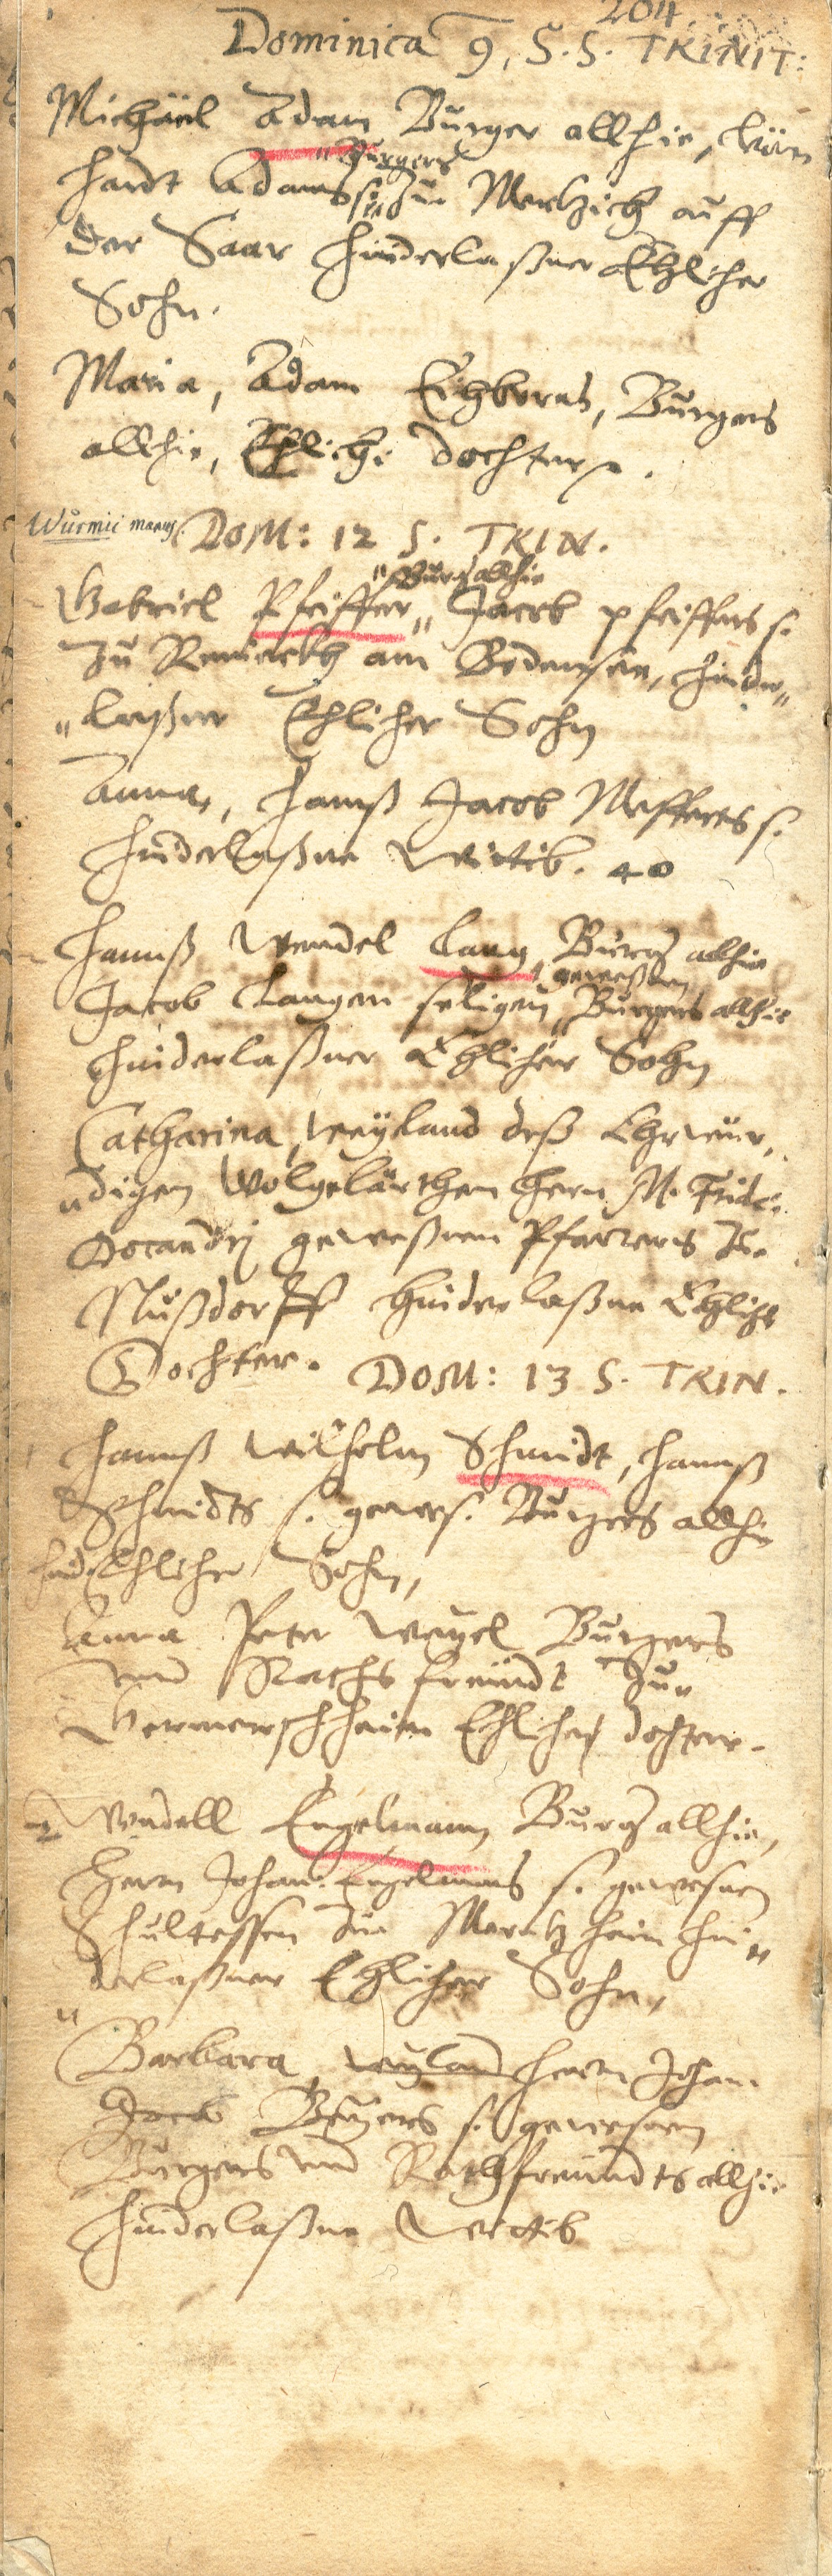 204.
Dominica 9, S. S. TRINIT:
Michäel Adam Burger allhie, Lien
hardt Adams s. Burgers zu Mertzich auff
der Saar hinderlaßner Ehlicher
Sohn.
Maria, Adam Eichborns, Burgers
allhie, Ehliche dochter.
Wurmii manus. DOM: 12 S. TRIN.
Gabriel Pfeiffer Burg. allhie Jacob Pfeiffers s.
zu am Bodensee, hinder„
„laßner Ehlicher Sohn
Anna, Hanß Jacob Mefferts s.
hinderlaßne Wittib.
Hannß Wendel Lang, Burg. allhie
Jacob Langen seligen geweßnen Burgers allhie
hinderlaßner Ehlicher Sohn
Catharina, weyland deß Ehrwür„
digen Wolgelärthen Herrn M. Frid:
Docandri geweßnen Pfarrers zu
Nußdorff hinderlaßne Ehliche
Dochter. DOM: 13 S. TRIN.
Hannß Wilhelm Schmidt, Hannß
Schmidts s. gewes. Burgers allhie
hind. Ehlicher Sohn,
Anna Peter Weyel Burgers
und Rathsfreundt zu
Germersheim Ehliche dochter.
Wendell Engelmann Burg. allhie,
Herrn Johan: Engelmans s. gewesnen
Schulteßen zu Mertzheim hin„
„derlaßner Ehlicher Sohn,
Barbara weyland Herrn Johan
Jacob s. gewesnen
Burgers und Rathsfreundts allhie
hinderlaßne Wittib